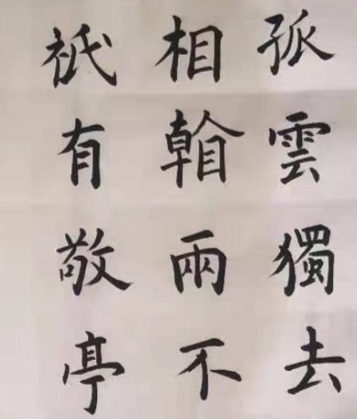 孤雲獨去
相兩不
祇有敬亭